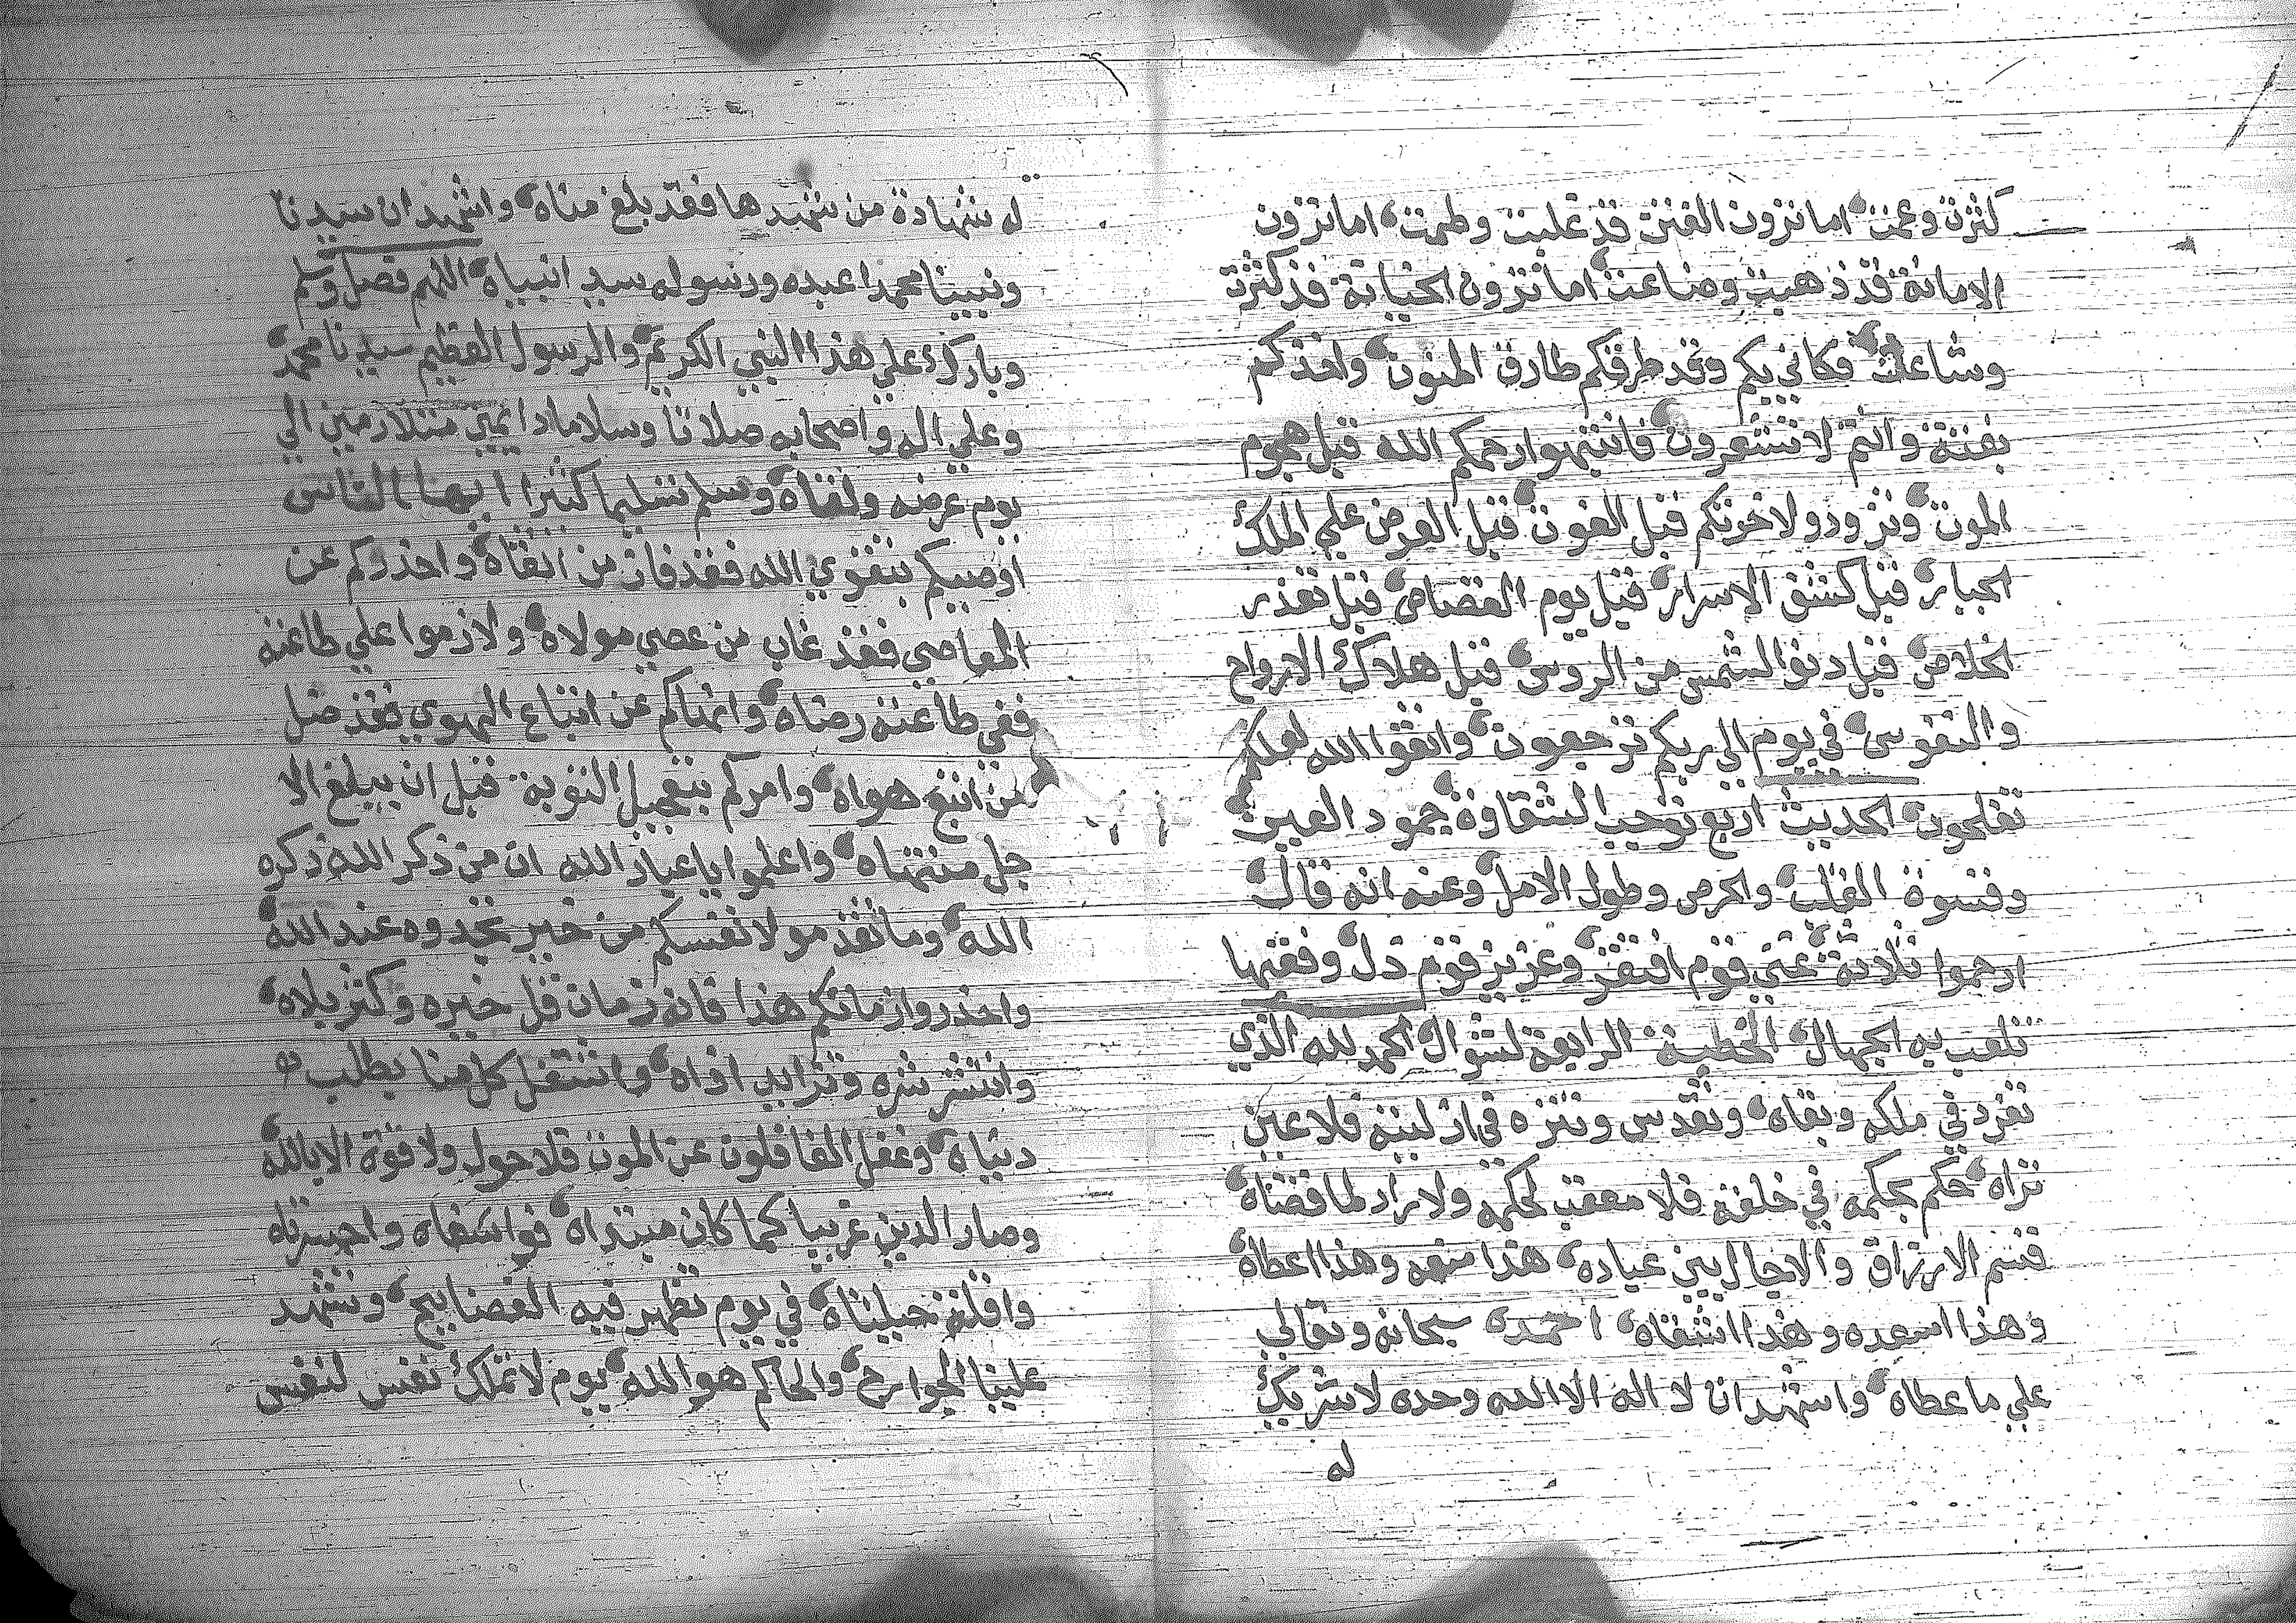 كثرت وعمت، اما ترون الفتن قد غلبت وطمت، اما ترون
الامانة قد ذهبت وضاعت، اما ترون الخيانة قد كثرت
وشاعت، فكاني بكم وقد طرقكم طارق المنون، واخذكم
بغتة وانتم لا تشعرون، فانتبهوا رحمكم الله قبل هجوم
الموت، وتزودو لاخرتكم قبل الفوت، قبل العرض علي الملك
الجبار، قبل كشف الاسرار، قبل يوم القصاص، قبل تعذر
الخلاص، قبل دنو الشمس من الروس، قبل هلاك الارواح
والنفوس، في يوم الي ربكم ترجعون، واتقوا الله لعلكم
تفلحون، الحديث اربع توجب الشقاوة، جمود العين،
وقسوة القلب، والحرص وطول الامل، وعنه انه قال،
ارحموا ثلاثة، غني قوم افتقر، وعزيز قوم ذل، وفقيها
تلعب به الجهال، الخطبة الرابعة لشوال، الحمد لله الذي
تفرد في ملكه وبقاه، وتقدس وتنزه في ازليته فلا عين
تراه، حكم بحكمه في خلقه فلا معقب لحكمه ولا راد لما قضاه،
قسم الارزاق والاجال بين عباده، هذا منعه وهذا اعطاه،
وهذا اسعده وهذا اشقاه، احمده سبحانه وتعالي
علي ما عطاه، واشهد ان لا اله الا الله وحده لا شريك
له
له شهادة من شهد ها فقد بلغ مناه، واشهد ان سيدنا
ونبينا محمدا عبده ورسوله سيد انبياه، اللهم فصل وسلم
وبارك علي هذا النبي الكريم، والرسول العظيم سيدنا محمد،
وعلي اله واصحابه صلاتا وسلاما دايمين متلازمين الي
يوم عرضه ولقاه، وسلم تسليما كثيرا ايها الناس
اوصيكم بتقوي الله فقد فاز من اتقاه، واحذركم عن
المعاصي فقد خاب من عصي مولاه، ولازموا علي طاعته
ففي طاعته رضاه، وانهاكم عن اتباع الهوي فقد ضل
من اتبع هواه، وامركم بتعجيل التوبة قبل ان يبلغ الا
جل منتهاه، واعلموا يا عباد الله ان من ذكر الله ذكره
الله، وما تقدمو لانفسكم من خير تجدوه عند الله،
واحذروا زمانكم هذا فانه زمان قل خيره وكثر بلاه،
وانتشر شره وتزايد اذاه، واشتغل كل منا بطلب
دنياه، وغفل الغافلون عن الموت فلا حول ولا قوة الا بالله،
وصار الدين غريبا كما كان مبتداه، فوا اسفاه واحسرتاه
واقلة حيلتاه، في يوم تظهر فيه الفضايح، وتشهد
علينا الجوارح، والحاكم هو الله، يوم لا تملك نفس لنفس